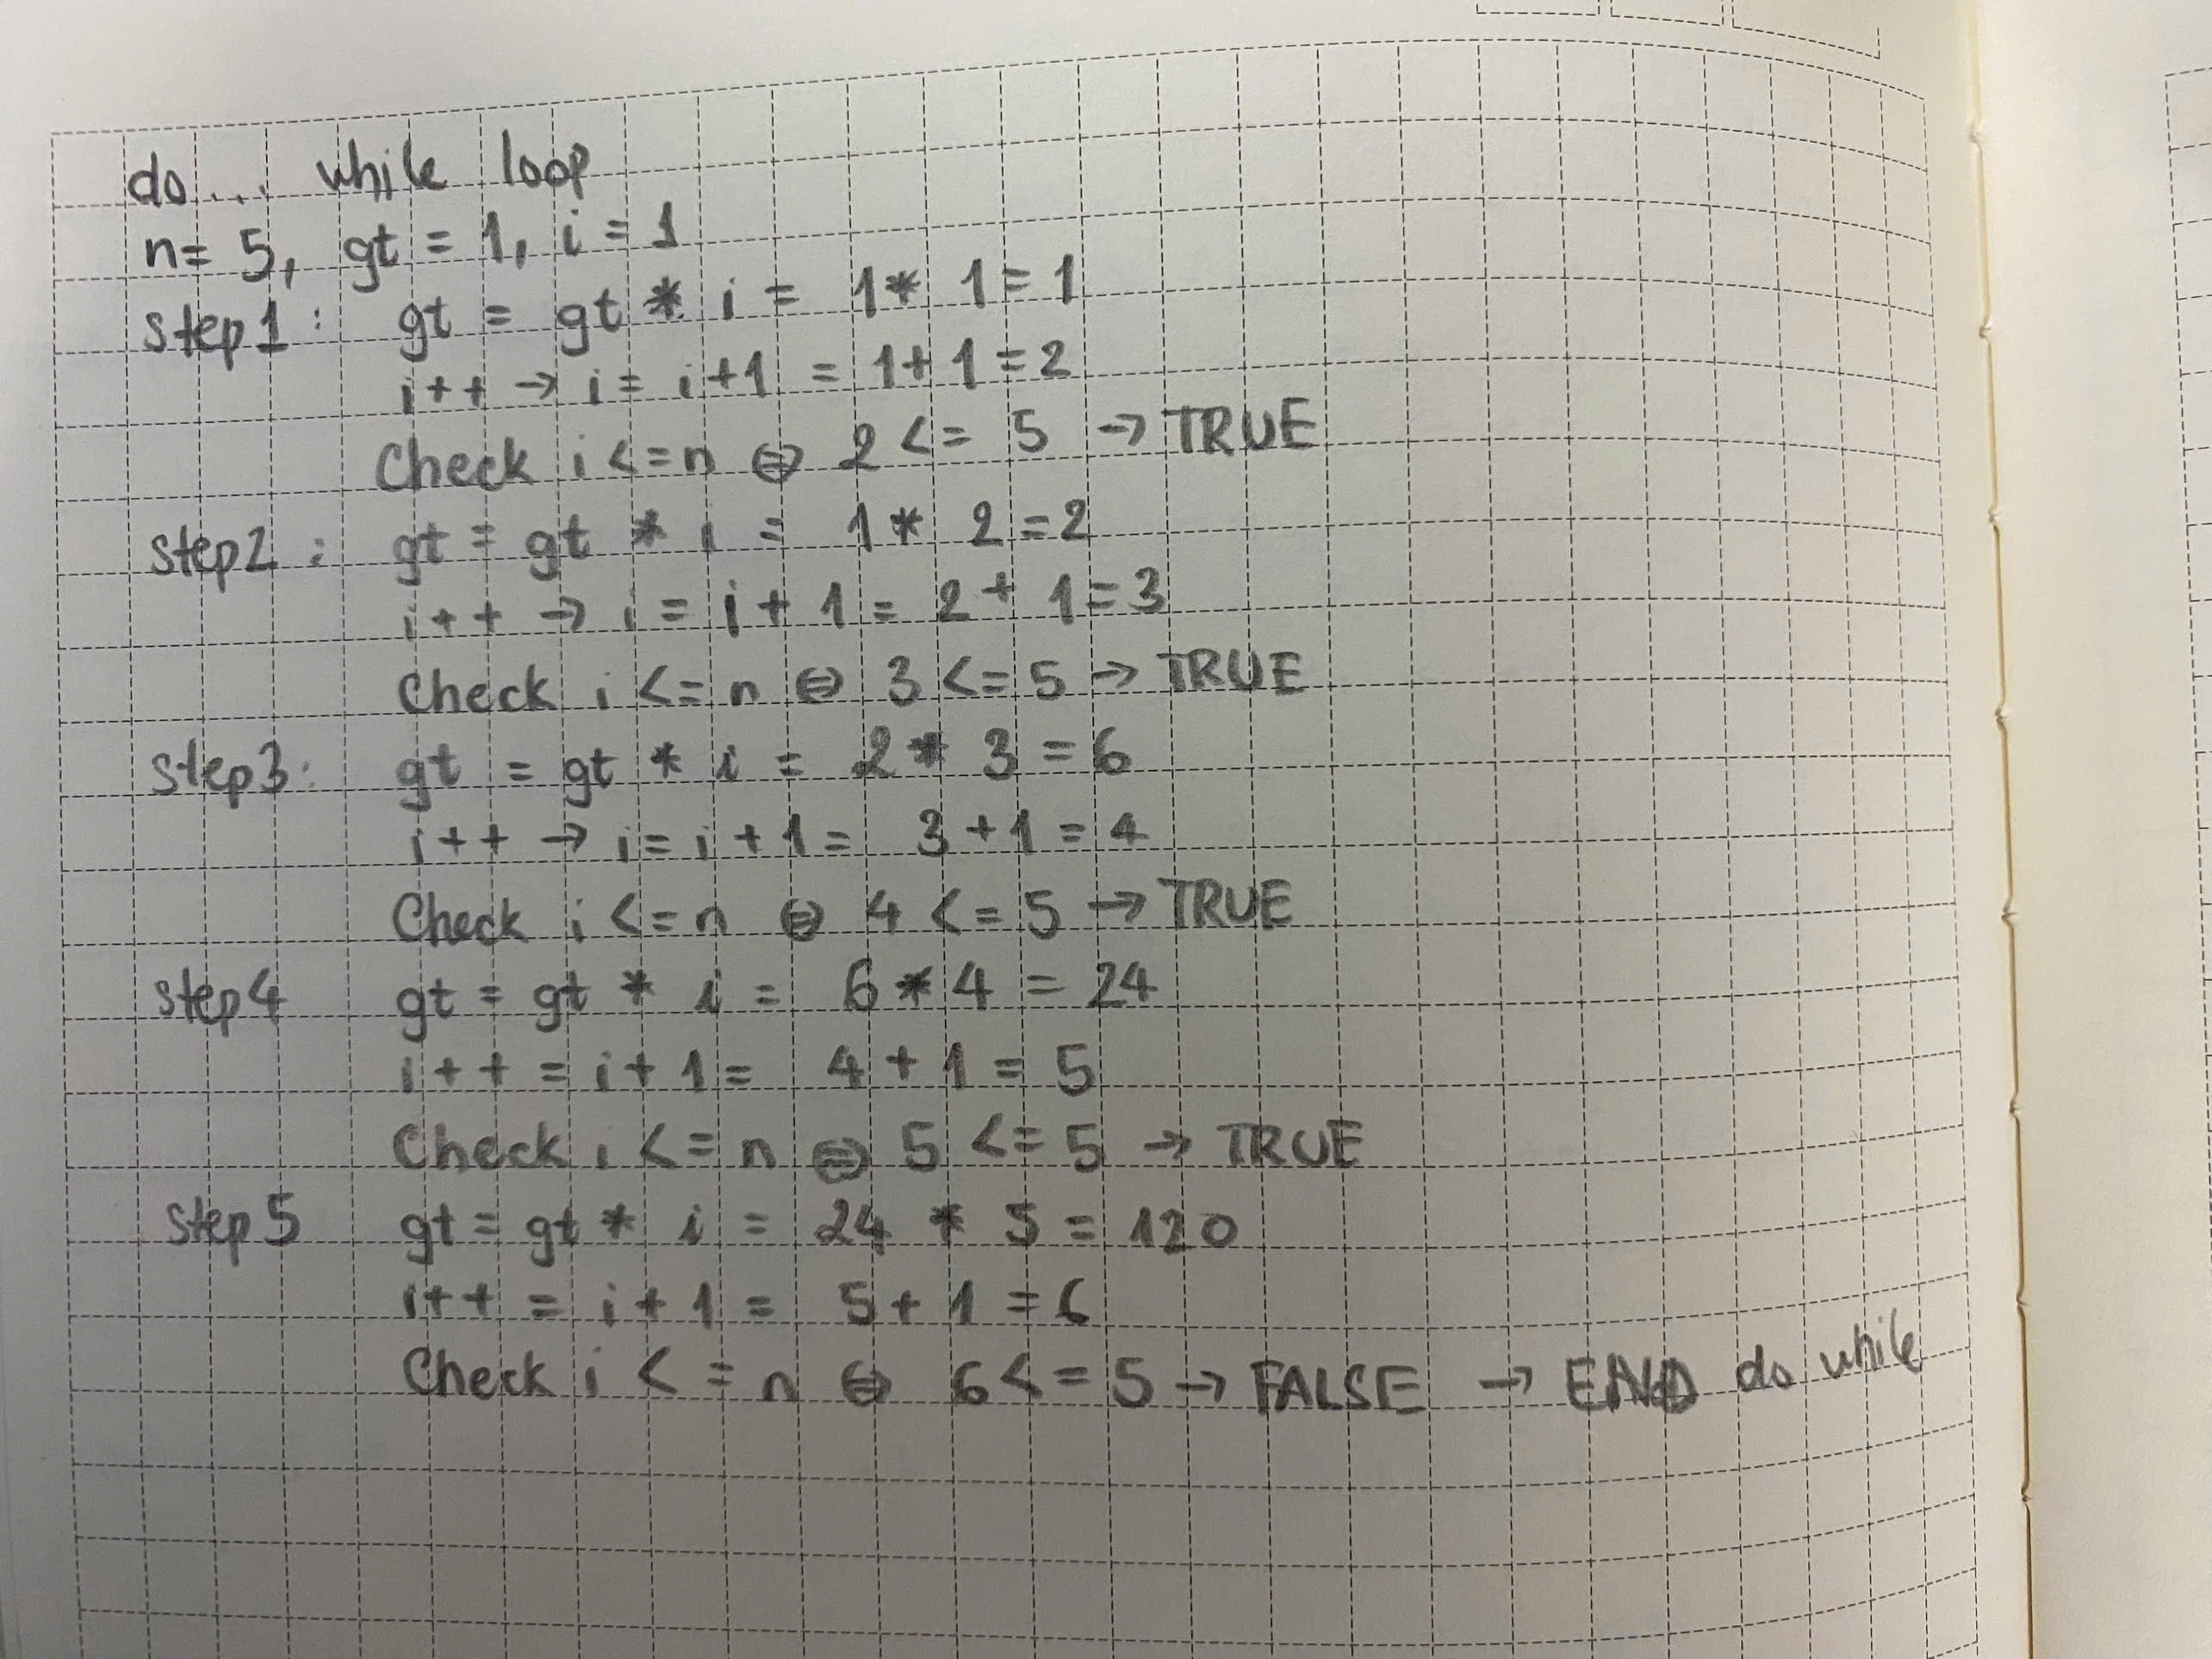 do... while loop
n= 5, gt = 1, i = 1
step1: gt = gt * i = 1* 1 = 1
i++ → i = i+1 = 1+1=2
Check i <=n ⇔ 2 <= 5 → TRUE
step2: gt = gt * i = 1* 2 = 2
i++ → i = i + 1 = 2 + 1 = 3
Check i <= n ⇔ 3 <= 5 → TRUE
step3: gt = gt * i = 2 * 3 = 6
i++ → i = i + 1 = 3 + 1 = 4
Check i <= n ⇔ 4 <= 5 → TRUE
step4 gt = gt * i = 6 * 4 = 24
i++ = i + 1 = 4 + 1 = 5
Check i <= n ⇔ 5 <= 5 → TRUE
step5 gt = gt * i = 24 * 5 = 120
i++ = i + 1 = 5 + 1 = 6
Check i <= n ⇔ 6 <= 5 → FALSE → END do while